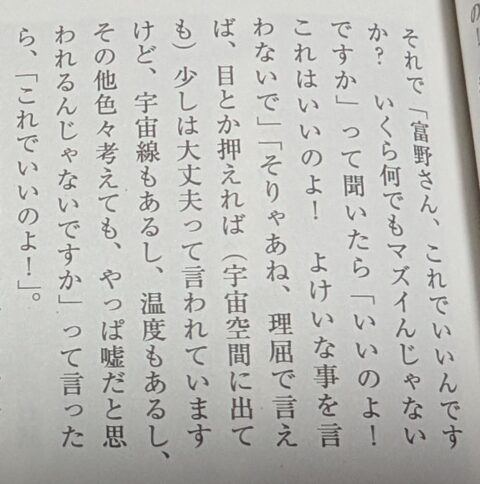 それで「富野さん、これでいいんです
か?　いくら何でもマズイんじゃない
ですか」って聞いたら「いいのよ!
これはいいのよ!　よけいな事を言
わないで」「そりゃあね、理屈で言え
ば、目とか押えれば(宇宙空間に出て
も)少しは大丈夫って言われています
けど、宇宙線もあるし、温度もあるし、
その他色々考えても、やっぱ嘘だと思
われるんじゃないですか」って言った
ら、「これでいいのよ!」。